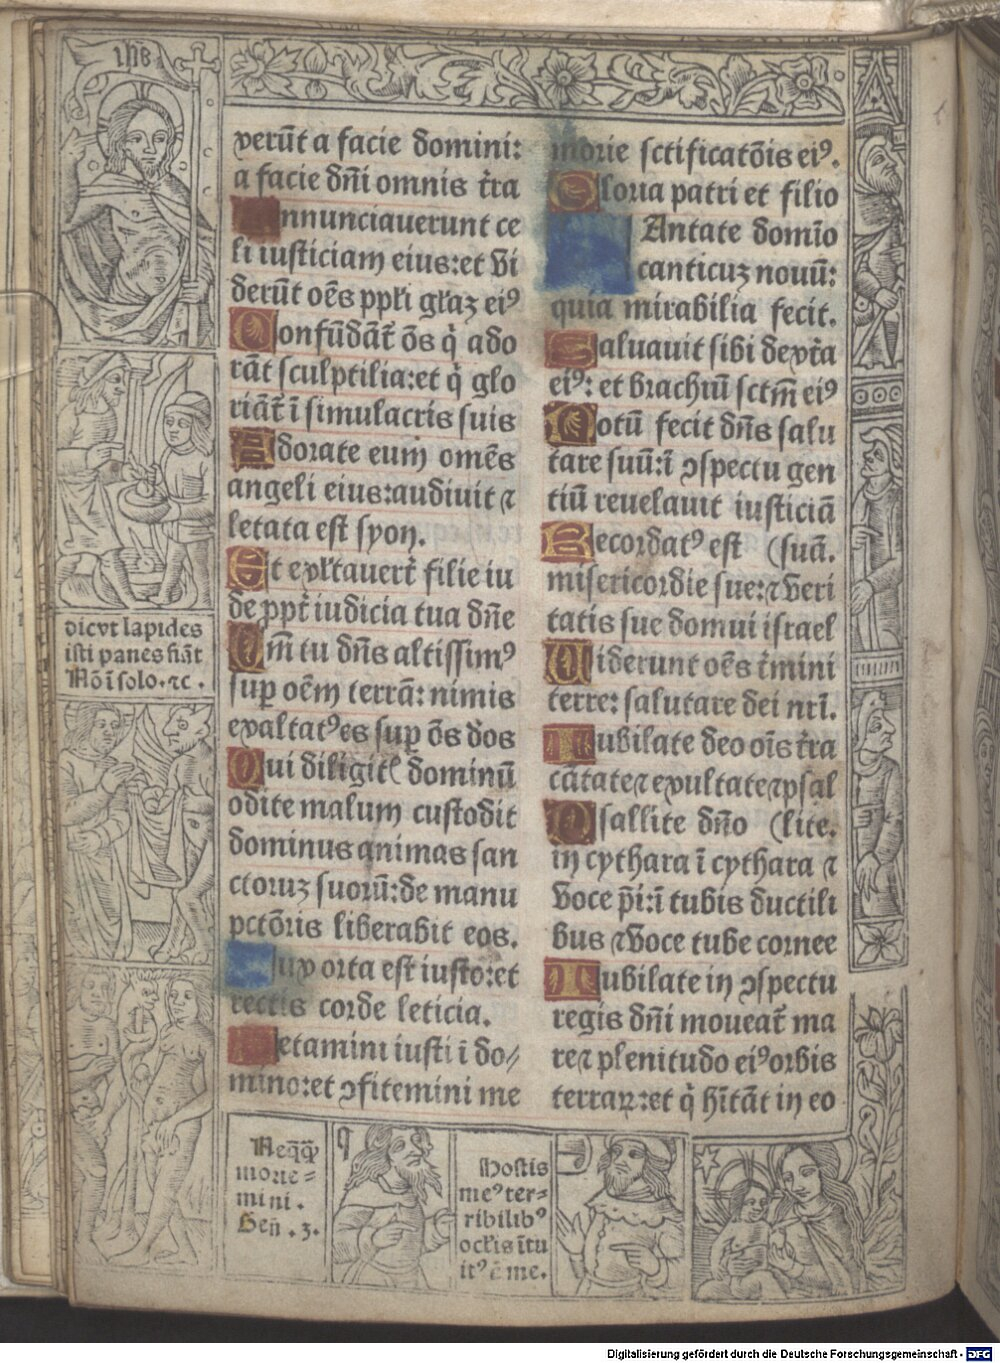 ihs
verūt a facie domini:
a facie dn̄i omnis t̄ra
Annunciaverunt ce
li iusticiam eius: et vi
derūt oēs ppl̄i gl̄aꝫ eiꝰ
Confūdāt̄ ōs q̇ ado
rāt sculptilia: et q̇ glo
riāt̄ ī simulacris suis
Adorate eum omēs
angeli eius: audivit ⁊
letata est syon.
Et exl̄taver̄t filie iu
de ꝓpt̄ iudicia tua dn̄e
Qm̄ tu dn̄s altissimꝰ
suꝑ oēm terrā: nimis
exaltatꝰ es suꝑ ōs d̄os
Qui diligitꝭ dominū
odite malum custodit
dominus animas san
ctoruꝫ suorū: de manu
pctōris liberabit eos.
Lux orta est iusto: et
rectis corde leticia.
Letamini iusti ī do/
mino: et ↄfitemini me
morie sctificatōis eiꝰ.
Gloria patri et filio
Cantate domīo
canticuꝫ nouū:
quia mirabilia fecit.
Saluauit sibi dext̄a
eiꝰ: et brachiū sctm̄ eiꝰ
Notū fecit dn̄s salu
tare suū: ī ↄspectu gen
tiū reuelauit iusticiā
Recordatꝰ est (suā.
misericordie sue: ⁊ veri
tatis sue domui israel
Viderunt oēs t̄mini
terre: salutare dei nr̄i.
Iubilate deo oīs t̄ra
cātate ⁊ exultate ⁊ psal
Psallite dn̄o (lite.
in cythara ī cythara ⁊
voce p̄i: ī tubis ductili
bus ⁊ voce tube cornee
Iubilate in ↄspectu
regis dn̄i moveat̄ ma
re ⁊ plenitudo eiꝰ orbis
terraꝝ: et q̇ hītāt in eo
dicvt lapides
isti panes fiāt
Nō ī solo. ⁊c.
Neq̄q̄
morie=
mini.
Gen̄. 3.
Hostis
meꝰ ter=
ribilibꝰ
ocl̄is ītu
itꝰ ē me.
Digitalisierung gefördert durch die Deutsche Forschungsgemeinschaft - DFG